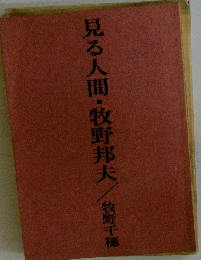 見る人間・牧野邦夫／牧野千穂